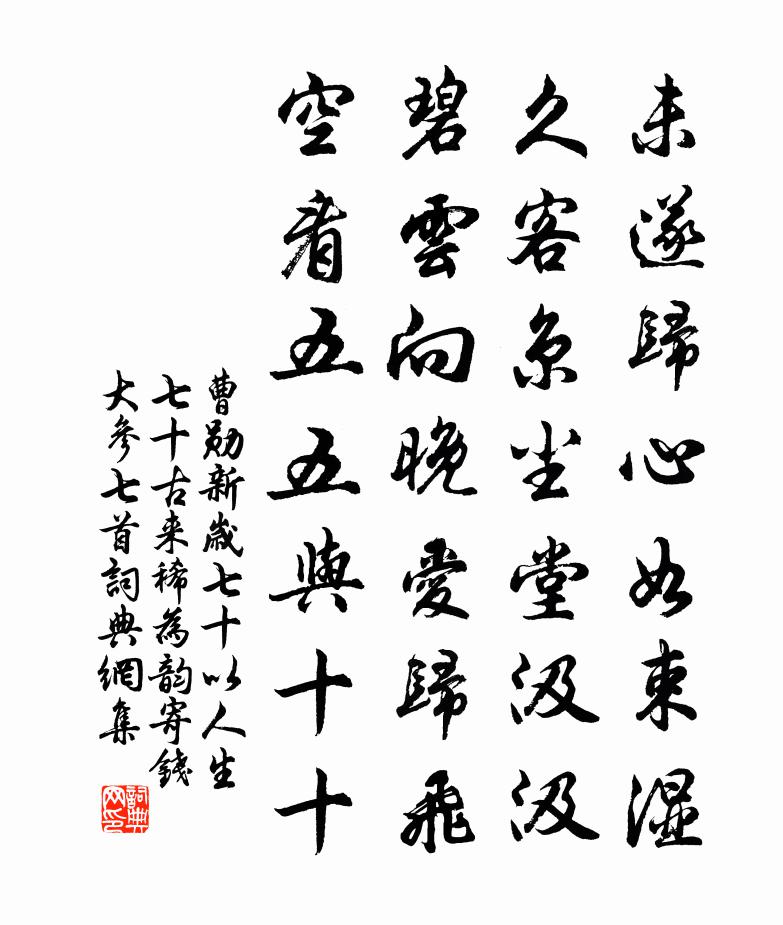 未遂歸心如束湿
久客京尘堂汲汲
碧雲向晚愛歸飛
空看五五與十十
曹勋新歲七十以人生
七十古来稀為韵寄錢
大參七首詞典網集
詞典网印